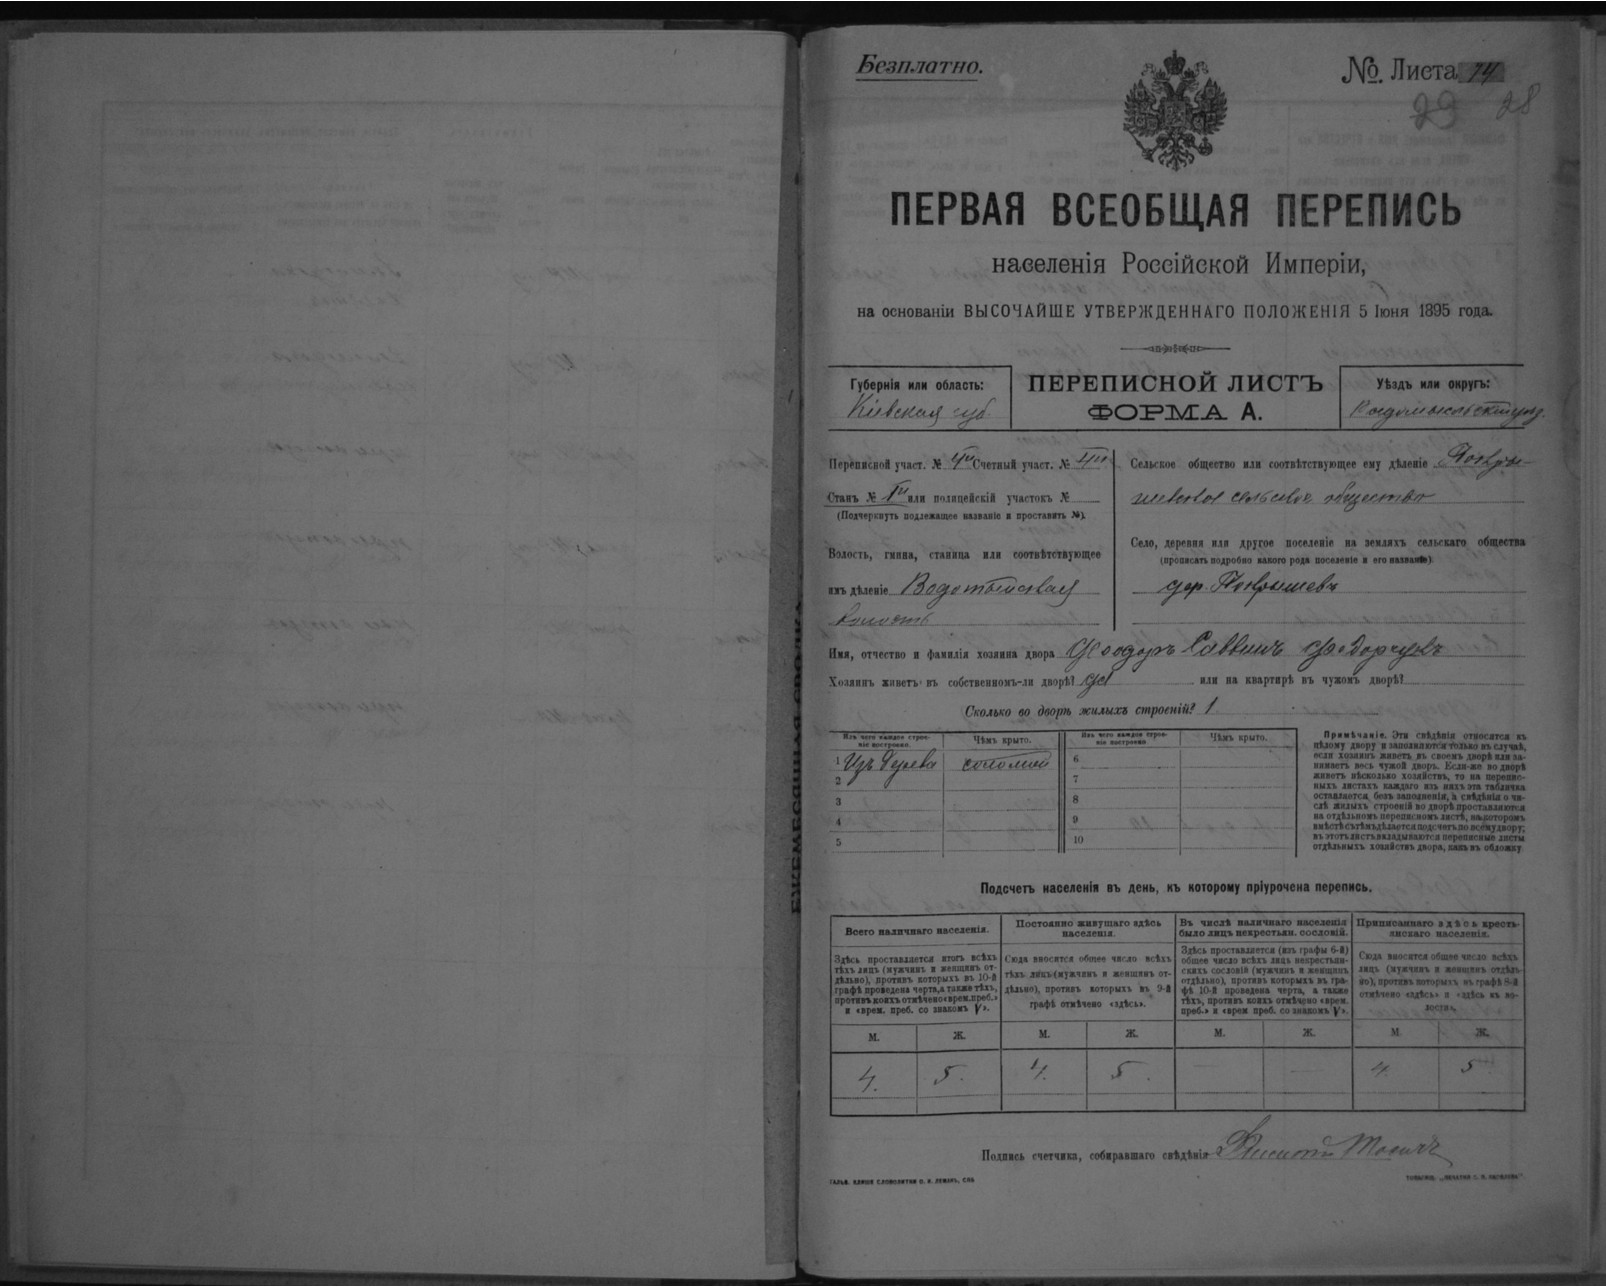 Безплатно.
№. Листа 14
29 28
ПЕРВАЯ ВСЕОБЩАЯ ПЕРЕПИСЬ
населенія Россійской Имперіи,
на основаніи ВЫСОЧАЙШЕ УТВЕРЖДЕННАГО ПОЛОЖЕНІЯ 5 Іюня 1895 года.
Губернія или область:
Кіевская губ.
ПЕРЕПИСНОЙ ЛИСТЪ
ФОРМА А.
Уѣздъ или округъ:
Переписной участ. № 4й Счетный участ. №
Станъ № или полицейскій участокъ №
(Подчеркнуть подлежащее названіе и проставить №).
Волость, гмина, станица или соотвѣтствующее
имъ дѣленіе Водотыйская
волость
Сельское общество или соотвѣтствующее ему дѣленіе Покры-
шевское сельское общество
Село, деревня или другое поселеніе на земляхъ сельскаго общества
(прописать подробно какого рода поселеніе и его названіе)
дер. Покрышевъ
Имя, отчество и фамилія хозяина двора Феодоръ Саввинъ Федорчукъ
Хозяинъ живетъ въ собственномъ-ли дворѣ? да или на квартирѣ въ чужомъ дворѣ?
Сколько во дворѣ жилыхъ строеній? 1
Изъ чего каждое строе-
ніе построено.
Чѣмъ крыто.
Изъ чего каждое строе-
ніе построено
Чѣмъ крыто.
1 Изъ дерева соломой 6
2 7
3 8
4 9
5 10
Примѣчаніе. Эти свѣдѣнія относятся къ
цѣлому двору и заполняются только въ случаѣ,
если хозяинъ живетъ въ своемъ дворѣ или за-
нимаетъ весь чужой дворъ. Если-же во дворѣ
живетъ нѣсколько хозяйствъ, то на перепис-
ныхъ листахъ каждаго изъ нихъ эта табличка
оставляется безъ заполненія, а свѣдѣнія о чи-
слѣ жилыхъ строеній во дворѣ проставляются
на отдѣльномъ переписномъ листѣ, на которомъ
вмѣстѣ съ тѣмъ дѣлается подсчетъ по всему двору;
въ этотъ листъ вкладываются переписные листы
отдѣльныхъ хозяйствъ двора, какъ въ обложку
Подсчетъ населенія въ день, къ которому пріурочена перепись.
Всего наличнаго населенія.
Здѣсь проставляется итогъ всѣхъ
тѣхъ лицъ (мужчинъ и женщинъ от-
дѣльно), противъ которыхъ въ 10-й
графѣ проведена черта, а также тѣхъ,
противъ коихъ отмѣчено «врем. преб.»
и «врем. преб. со знакомъ V».
Постоянно живущаго здѣсь
населенія.
Сюда вносится общее число всѣхъ
тѣхъ лицъ (мужчинъ и женщинъ от-
дѣльно), противъ которыхъ въ 9-й
графѣ отмѣчено «здѣсь».
Въ числѣ наличнаго населенія
было лицъ некрестьян. сословій.
Здѣсь проставляется (изъ графы 6-й)
общее число всѣхъ лицъ некрестьян-
скихъ сословій (мужчинъ и женщинъ
отдѣльно), противъ которыхъ въ гра-
фѣ 10-й проведена черта, а также
тѣхъ, противъ коихъ отмѣчено «врем.
преб.» и «врем преб. со знакомъ V».
Приписаннаго здѣсь кресть-
янскаго населенія.
Сюда вносится общее число всѣхъ
лицъ (мужчинъ и женщинъ отдѣль-
но), противъ которыхъ въ графѣ 8-й
отмѣчено «здѣсь» и «здѣсь въ во-
лости».
М. Ж. М. Ж. М. Ж. М. Ж.
4. 5. 4. 5. — — 4. 5
Подпись счетчика, собиравшаго свѣдѣнія